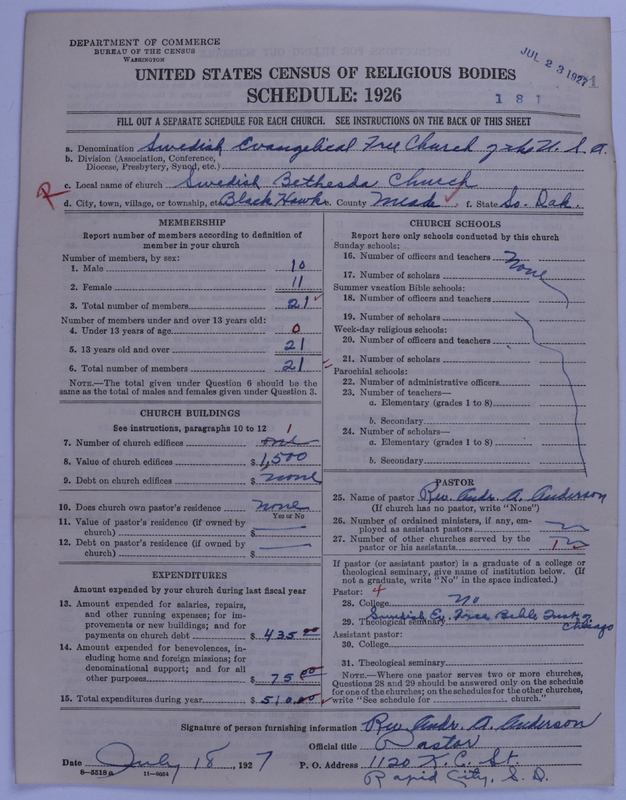 DEPARTMENT OF COMMERCE
BUREAU OF THE CENSUS
WASHINGTON
JUL 23 1927
UNITED STATES CENSUS OF RELIGIOUS BODIES
SCHEDULE: 1926
1 8 1
FILL OUT A SEPARATE SCHEDULE FOR EACH CHURCH. SEE INSTRUCTIONS ON THE BACK OF THIS SHEET
a. Denomination Swedish Evangelical Free Church of the U. S. A.
b. Division (Association, Conference, Diocese, Presbytery, Synod, etc.)
c. Local name of church Swedish Bethesda Church
d. City, town, village, or township, etc. Black Hawk e. County Meade f. State So. Dak.
MEMBERSHIP
Report number of members according to definition of member in your church
Number of members, by sex:
1. Male 10
2. Female 11
3. Total number of members 21
Number of members under and over 13 years old:
4. Under 13 years of age 0
5. 13 years old and over 21
6. Total number of members 21
NOTE.—The total given under Question 6 should be the same as the total of males and females given under Question 3.
CHURCH BUILDINGS
See instructions, paragraphs 10 to 12
7. Number of church edifices one 1
8. Value of church edifices $ 1,500
9. Debt on church edifices $ none
10. Does church own pastor's residence? none
Yes or No
11. Value of pastor's residence (if owned by church) $
12. Debt on pastor's residence (if owned by church) $
EXPENDITURES
Amount expended by your church during last fiscal year
13. Amount expended for salaries, repairs, and other running expenses; for improvements or new buildings; and for payments on church debt $ 435.00
14. Amount expended for benevolences, including home and foreign missions; for denominational support; and for all other purposes $ 75.00
15. Total expenditures during year $ 510.00
CHURCH SCHOOLS
Report here only schools conducted by this church
Sunday schools:
16. Number of officers and teachers none
17. Number of scholars
Summer vacation Bible schools:
18. Number of officers and teachers
19. Number of scholars
Week-day religious schools:
20. Number of officers and teachers
21. Number of scholars
Parochial schools:
22. Number of administrative officers
23. Number of teachers—
a. Elementary (grades 1 to 8)
b. Secondary
24. Number of scholars—
a. Elementary (grades 1 to 8)
b. Secondary
PASTOR
25. Name of pastor Rev. Andr. A. Anderson
(If church has no pastor, write "None")
26. Number of ordained ministers, if any, employed as assistant pastors
27. Number of other churches served by the pastor or his assistants 1
If pastor (or assistant pastor) is a graduate of a college or theological seminary, give name of institution below. (If not a graduate, write "No" in the space indicated.)
Pastor: 4
28. College no
29. Theological seminary Swedish Ev. Free Bible Inst. Chicago
Assistant pastor:
30. College
31. Theological seminary
NOTE.—Where one pastor serves two or more churches, Questions 28 and 29 should be answered only on the schedule for one of the churches; on the schedules for the other churches, write "See schedule for church."
Signature of person furnishing information Rev. Andr. A. Anderson
Official title Pastor
Date July 18, 1927 P. O. Address 1120 K. C. St.
Rapid City, S. D.
8—5518 a 11—9054